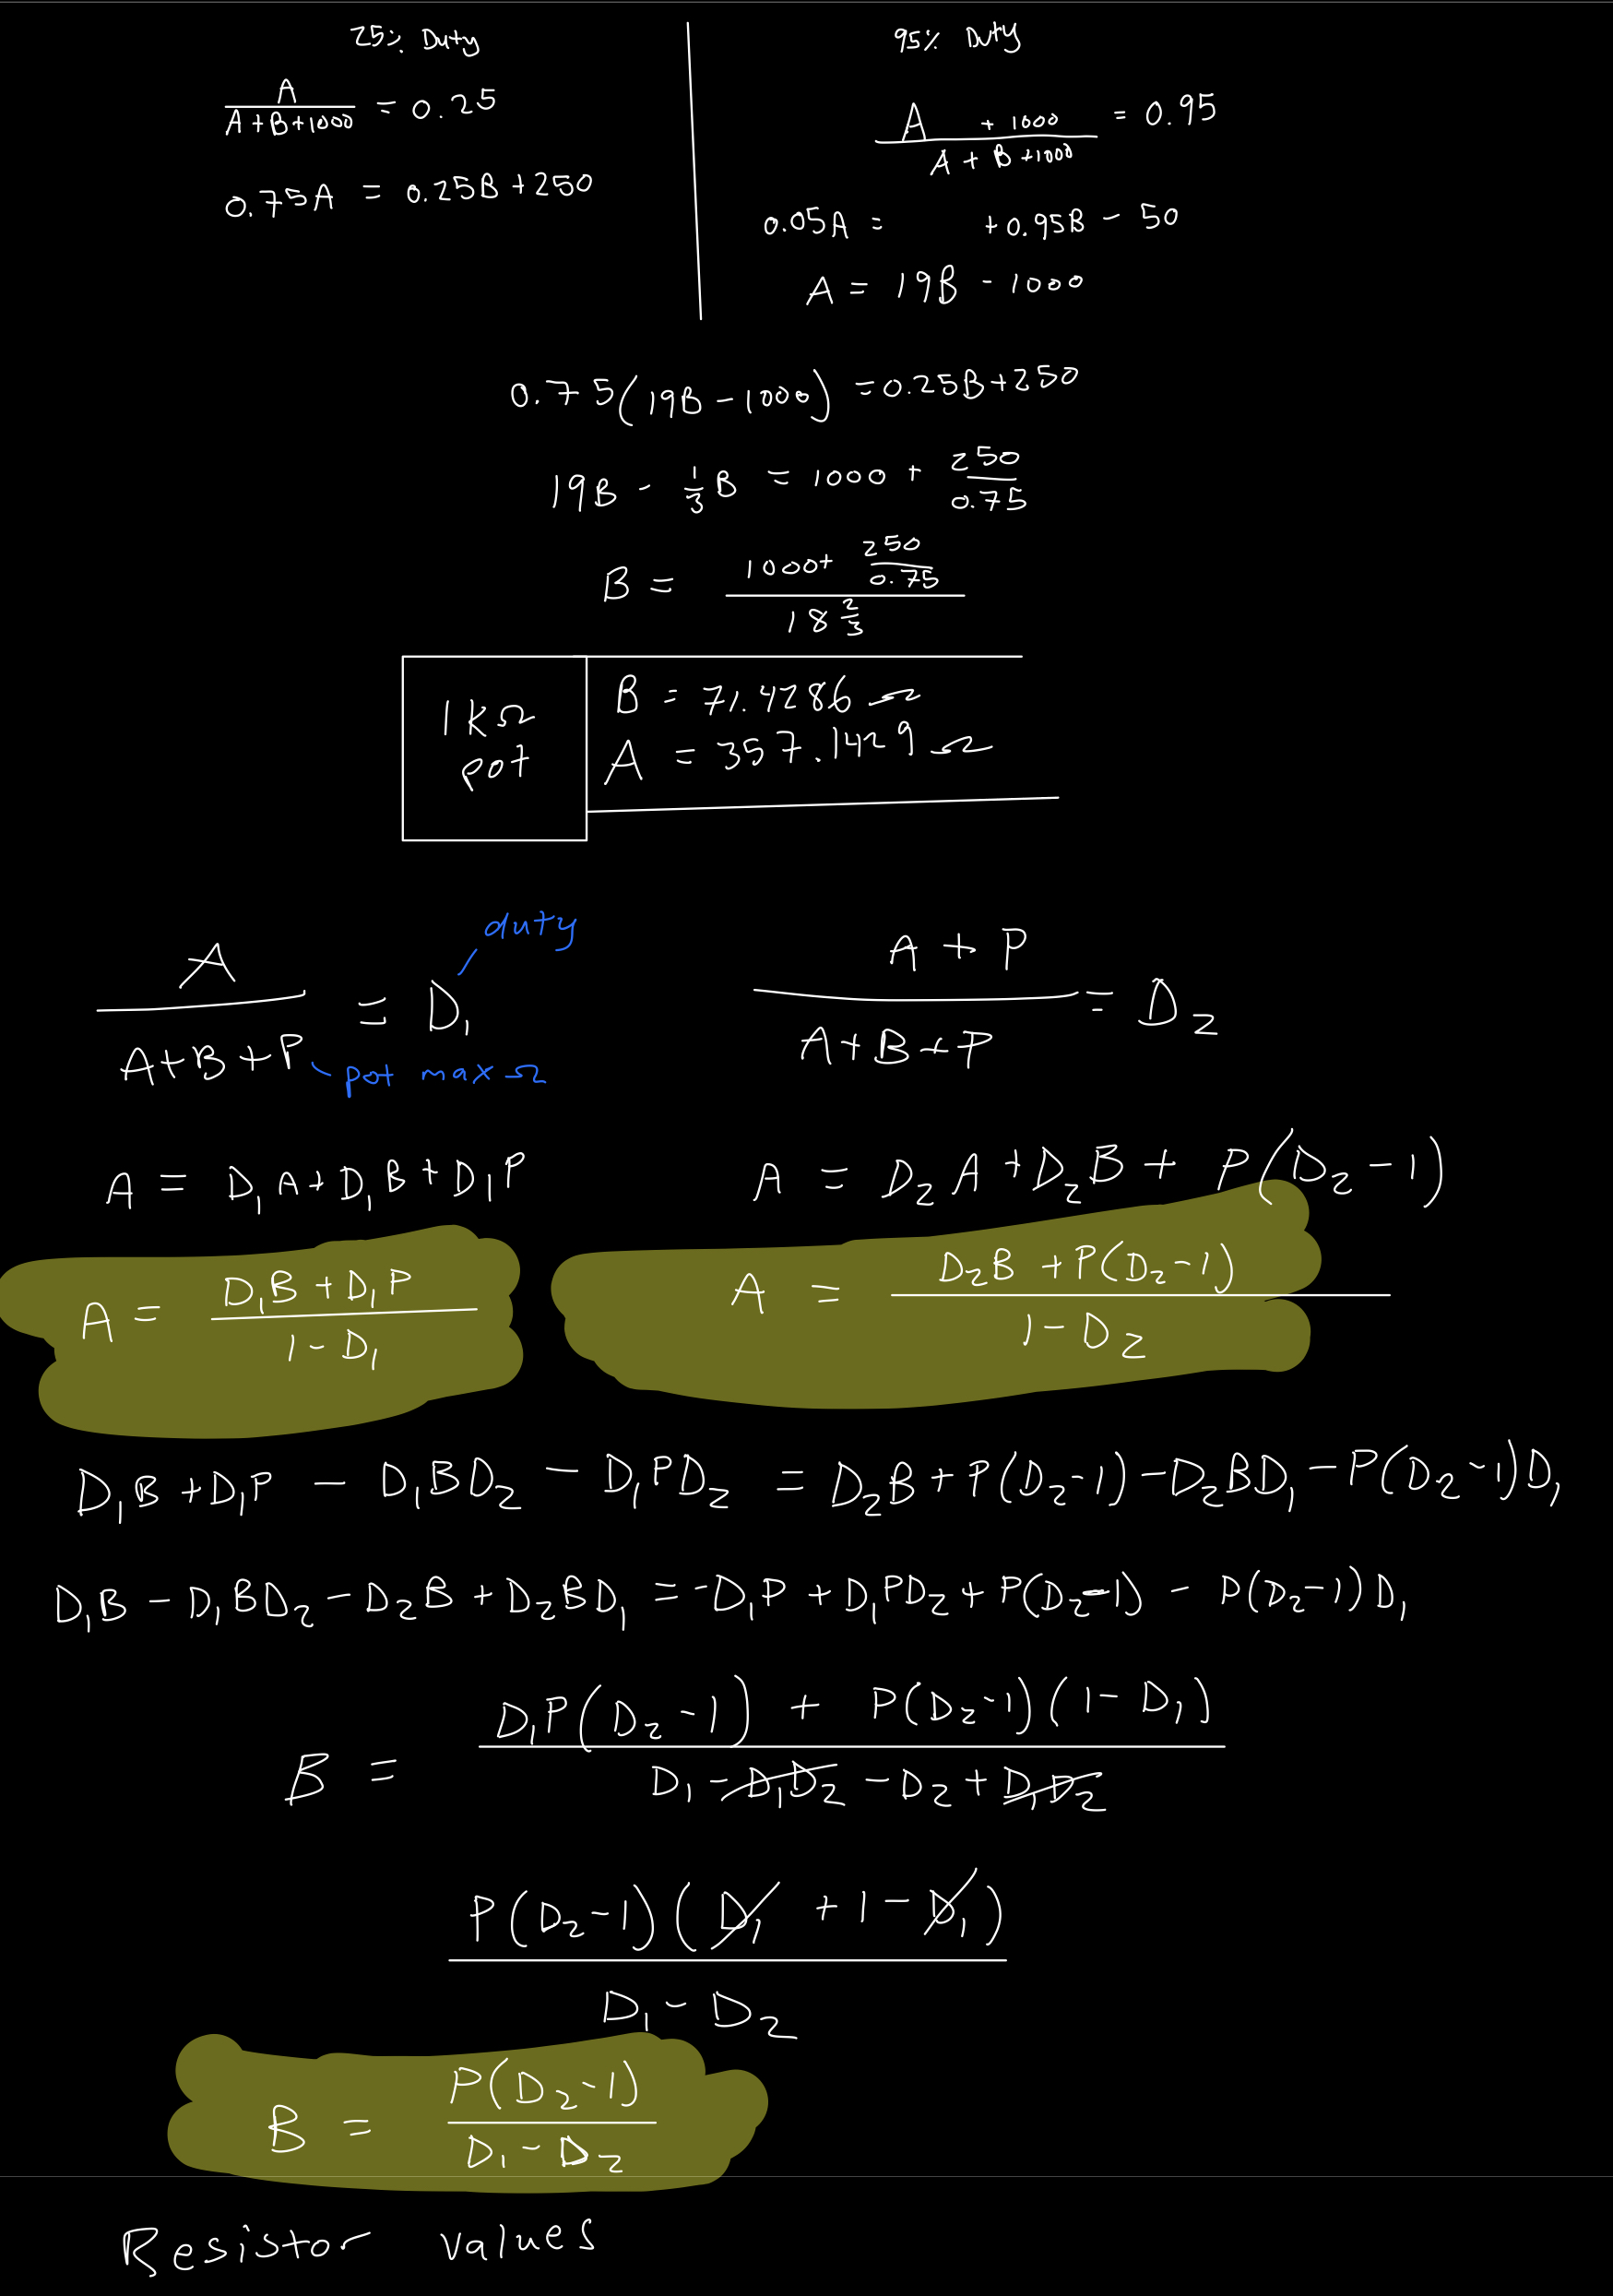 25% Duty
A / (A+B+1000) = 0.25
0.75A = 0.25B+250
95% Duty
(A + 1000) / (A + B +1000) = 0.95
0.05A = +0.95B - 50
A = 19B - 1000
0.75(19B - 1000) = 0.25B+250
19B - 1/3 B = 1000 + 250/0.75
B = (1000+ 250/0.75) / (18 2/3)
1kΩ
pot
B = 71.4286 Ω
A = 357.1429 Ω
duty
A / (A+B+P) = D₁
pot max Ω
(A + P) / (A+B+P) = D₂
A = D₁A+D₁B+D₁P
A = D₂A+D₂B+ P(D₂-1)
A = (D₁B+D₁P) / (1-D₁)
A = (D₂B +P(D₂-1)) / (1-D₂)
D₁B +D₁P - D₁BD₂ - D₁PD₂ = D₂B+P(D₂-1)-D₂BD₁-P(D₂-1)D₁
D₁B - D₁BD₂ - D₂B + D₂BD₁ = -D₁P + D₁PD₂ + P(D₂-1) - P(D₂-1)D₁
B = (D₁P(D₂-1) + P(D₂-1)(1-D₁)) / (D₁ - D₁D₂ - D₂ + D₁D₂)
P(D₂-1)(D₁ +1-D₁) / (D₁-D₂)
B = P(D₂-1) / (D₁-D₂)
Resistor values